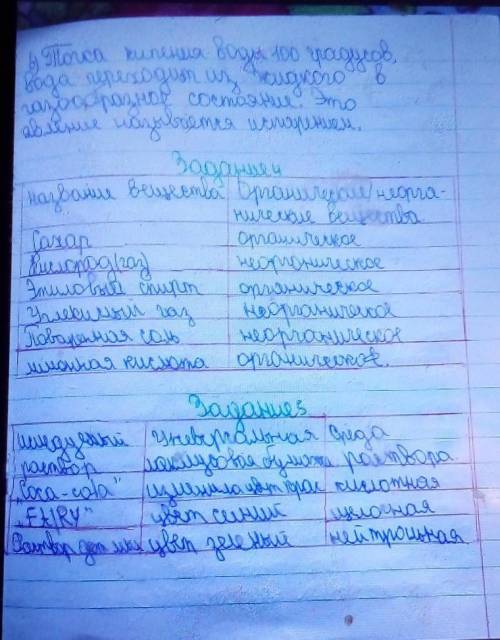 в) Точка кипения воды 100 градусов,
вода переходит из жидкого в
газообразное состояние. Это
явление называется испарением.
Задание4
Название вещества Органические/неорга-
нические вещества
Сахар органическое
Кислород(газ) неорганическое
Этиловый спирт органическое
Углекислый газ неорганическое
Поваренная соль неорганическое
лимонная кислота органическое.
Задание5
раствор универсальная среда
лакмусовая бумага раствора
"Coca-cola" изменила цвет крас кислотная
"FAIRY" цвет синий щелочная
Раствор цвет зеленый нейтральная